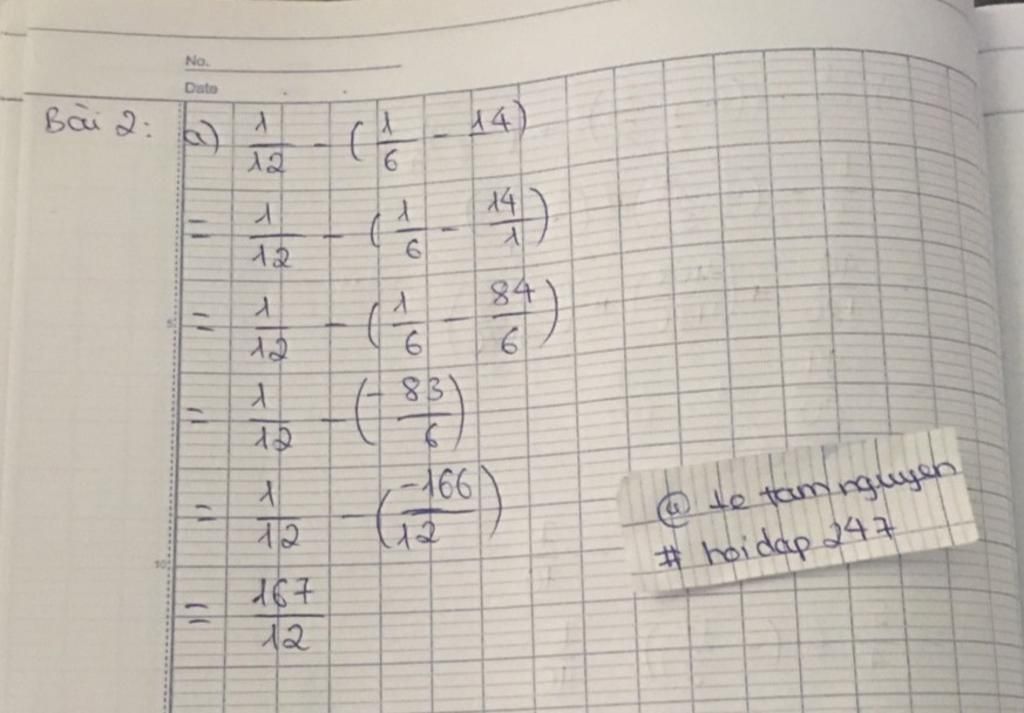 No.
Date
Bài 2: a) 1/12 - (1/6 - 14)
= 1/12 - (1/6 - 14/1)
= 1/12 - (1/6 - 84/6)
= 1/12 - (-83/6)
= 1/12 - (-166/12)
= 167/12
5
10
@ te tamnguyen
# hoidap 247